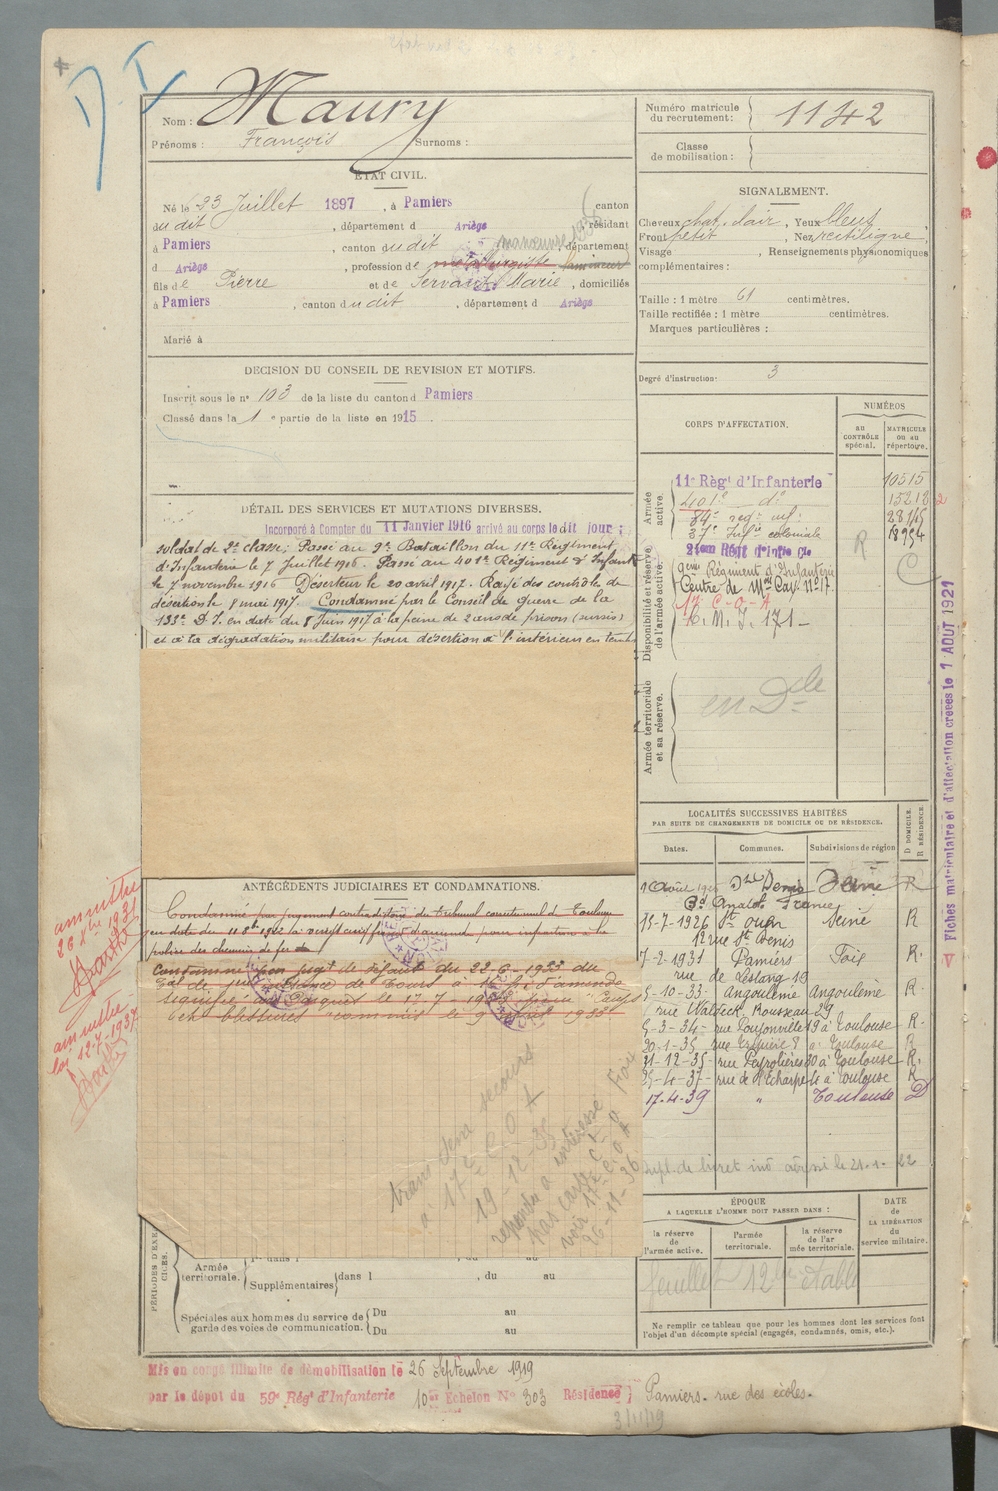 Nom : Maury
Prénoms : François Surnoms :
ÉTAT CIVIL.
Né le 23 Juillet 1897, à Pamiers canton
du dit, département d Ariège, résidant
à Pamiers, canton du dit, département
manœuvre
d Ariège, profession de métallurgiste
fils de Pierre et de Servant Marie, domiciliés
à Pamiers, canton du dit, département d Ariège
Marié à
DÉCISION DU CONSEIL DE REVISION ET MOTIFS.
Inscrit sous le n° 103 de la liste du canton d Pamiers
Classé dans la 1e partie de la liste en 1915
DÉTAIL DES SERVICES ET MUTATIONS DIVERSES.
Incorporé à Compter du 11 Janvier 1916 arrivé au corps le dit jour ;
soldat de 2e classe; Passé au 9e Bataillon du 11e Régiment
d'Infanterie le 7 Juillet 1916. Passé au 401e Régiment d'Infant
le 7 novembre 1916 Déserteur le 20 avril 1917. Rayé des contrôles de
désertion le 8 mai 1917. Condamné par le Conseil de guerre de la
133e D.I. en date du 8 Juin 1917 à la peine de 2 ans de prison (sursis)
et à la dégradation militaire pour désertion à l'intérieur en temps
ANTÉCÉDENTS JUDICIAIRES ET CONDAMNATIONS.
Condamné par jugement contradictoire du tribunal correctionnel de Toulouse
en date du 11 8bre 1902 à d'amende pour infraction à la
police des chemins de fer
Condamné par jugt de défaut du 22-6-1933 du
de Tours à 16 f. d'amende
signifié à le 17-7-19 pour "Coups
et blessures" commis le 9 1933
amnistie
26 Xbre 1931
amnistie
loi 12-7-1937
trans Sera secours
a 17e C O A
19-12-35
répondu à intéressé
pas carte
voir 17e C O A
26-11-36
PÉRIODES D'EXERCICES.
Armée territoriale.
Supplémentaires dans l , du au
Spéciales aux hommes du service de garde des voies de communication.
Du au
Du au
Mis en congé illimité de démobilisation le 26 Septembre 1919
par le dépôt du 59e Régt d'Infanterie 10e Echelon N° 303 Résidence } Pamiers - rue des écoles.
3/11/19
Numéro matricule du recrutement : 1142
Classe de mobilisation :
SIGNALEMENT.
Cheveux chat. clair, Yeux bleus
Front petit, Nez rectiligne
Visage , Renseignements physionomiques
complémentaires :
Taille : 1 mètre 61 centimètres.
Taille rectifiée : 1 mètre centimètres.
Marques particulières :
Degré d'instruction : 3
CORPS D'AFFECTATION.
NUMÉROS
au CONTRÔLE spécial.
MATRICULE ou au répertoire.
Armée active.
11e Régt d'Infanterie 10515
401e do 15212
84e reg. inf. 28165
37e Infie coloniale 18954
Disponibilité et réserve de l'armée active.
21em Régt d'Infie Cle
9eme Régiment d'Infanterie
Centre de Mon Cav. N° 17.
17 C-O-A
C. M. I. 171 -
R
C
Armée territoriale et sa réserve.
en Dcle
LOCALITÉS SUCCESSIVES HABITÉES
PAR SUITE DE CHANGEMENTS DE DOMICILE OU DE RÉSIDENCE.
Dates. Communes. Subdivisions de région D DOMICILE. R RÉSIDENCE.
St Denis Seine R
Bd Anatole France
15-7-1926 St Ouen Seine R
12 rue St Denis
7-2-1931 Pamiers Foix R.
rue de Lestang 19
5-10-33 Angoulême Angoulême R
rue Waldeck Rousseau 29
5-3-34 - 19 à Toulouse - R.
30-1-35 8 à Toulouse R
31-12-35 - rue Peyrolières 30 à Toulouse - R.
25-4-37 - rue de l'Echarpe 4 à Toulouse R
17-4-39 " Toulouse D
ÉPOQUE
A LAQUELLE L'HOMME DOIT PASSER DANS :
la réserve de l'armée active.
l'armée territoriale.
la réserve de l'armée territoriale.
DATE de LA LIBÉRATION du service militaire.
feuillet
Ne remplir ce tableau que pour les hommes dont les services font
l'objet d'un décompte spécial (engagés, condamnés, omis, etc.).
Fiches matriculaire et d'affectation créées le 1 AOUT 1921